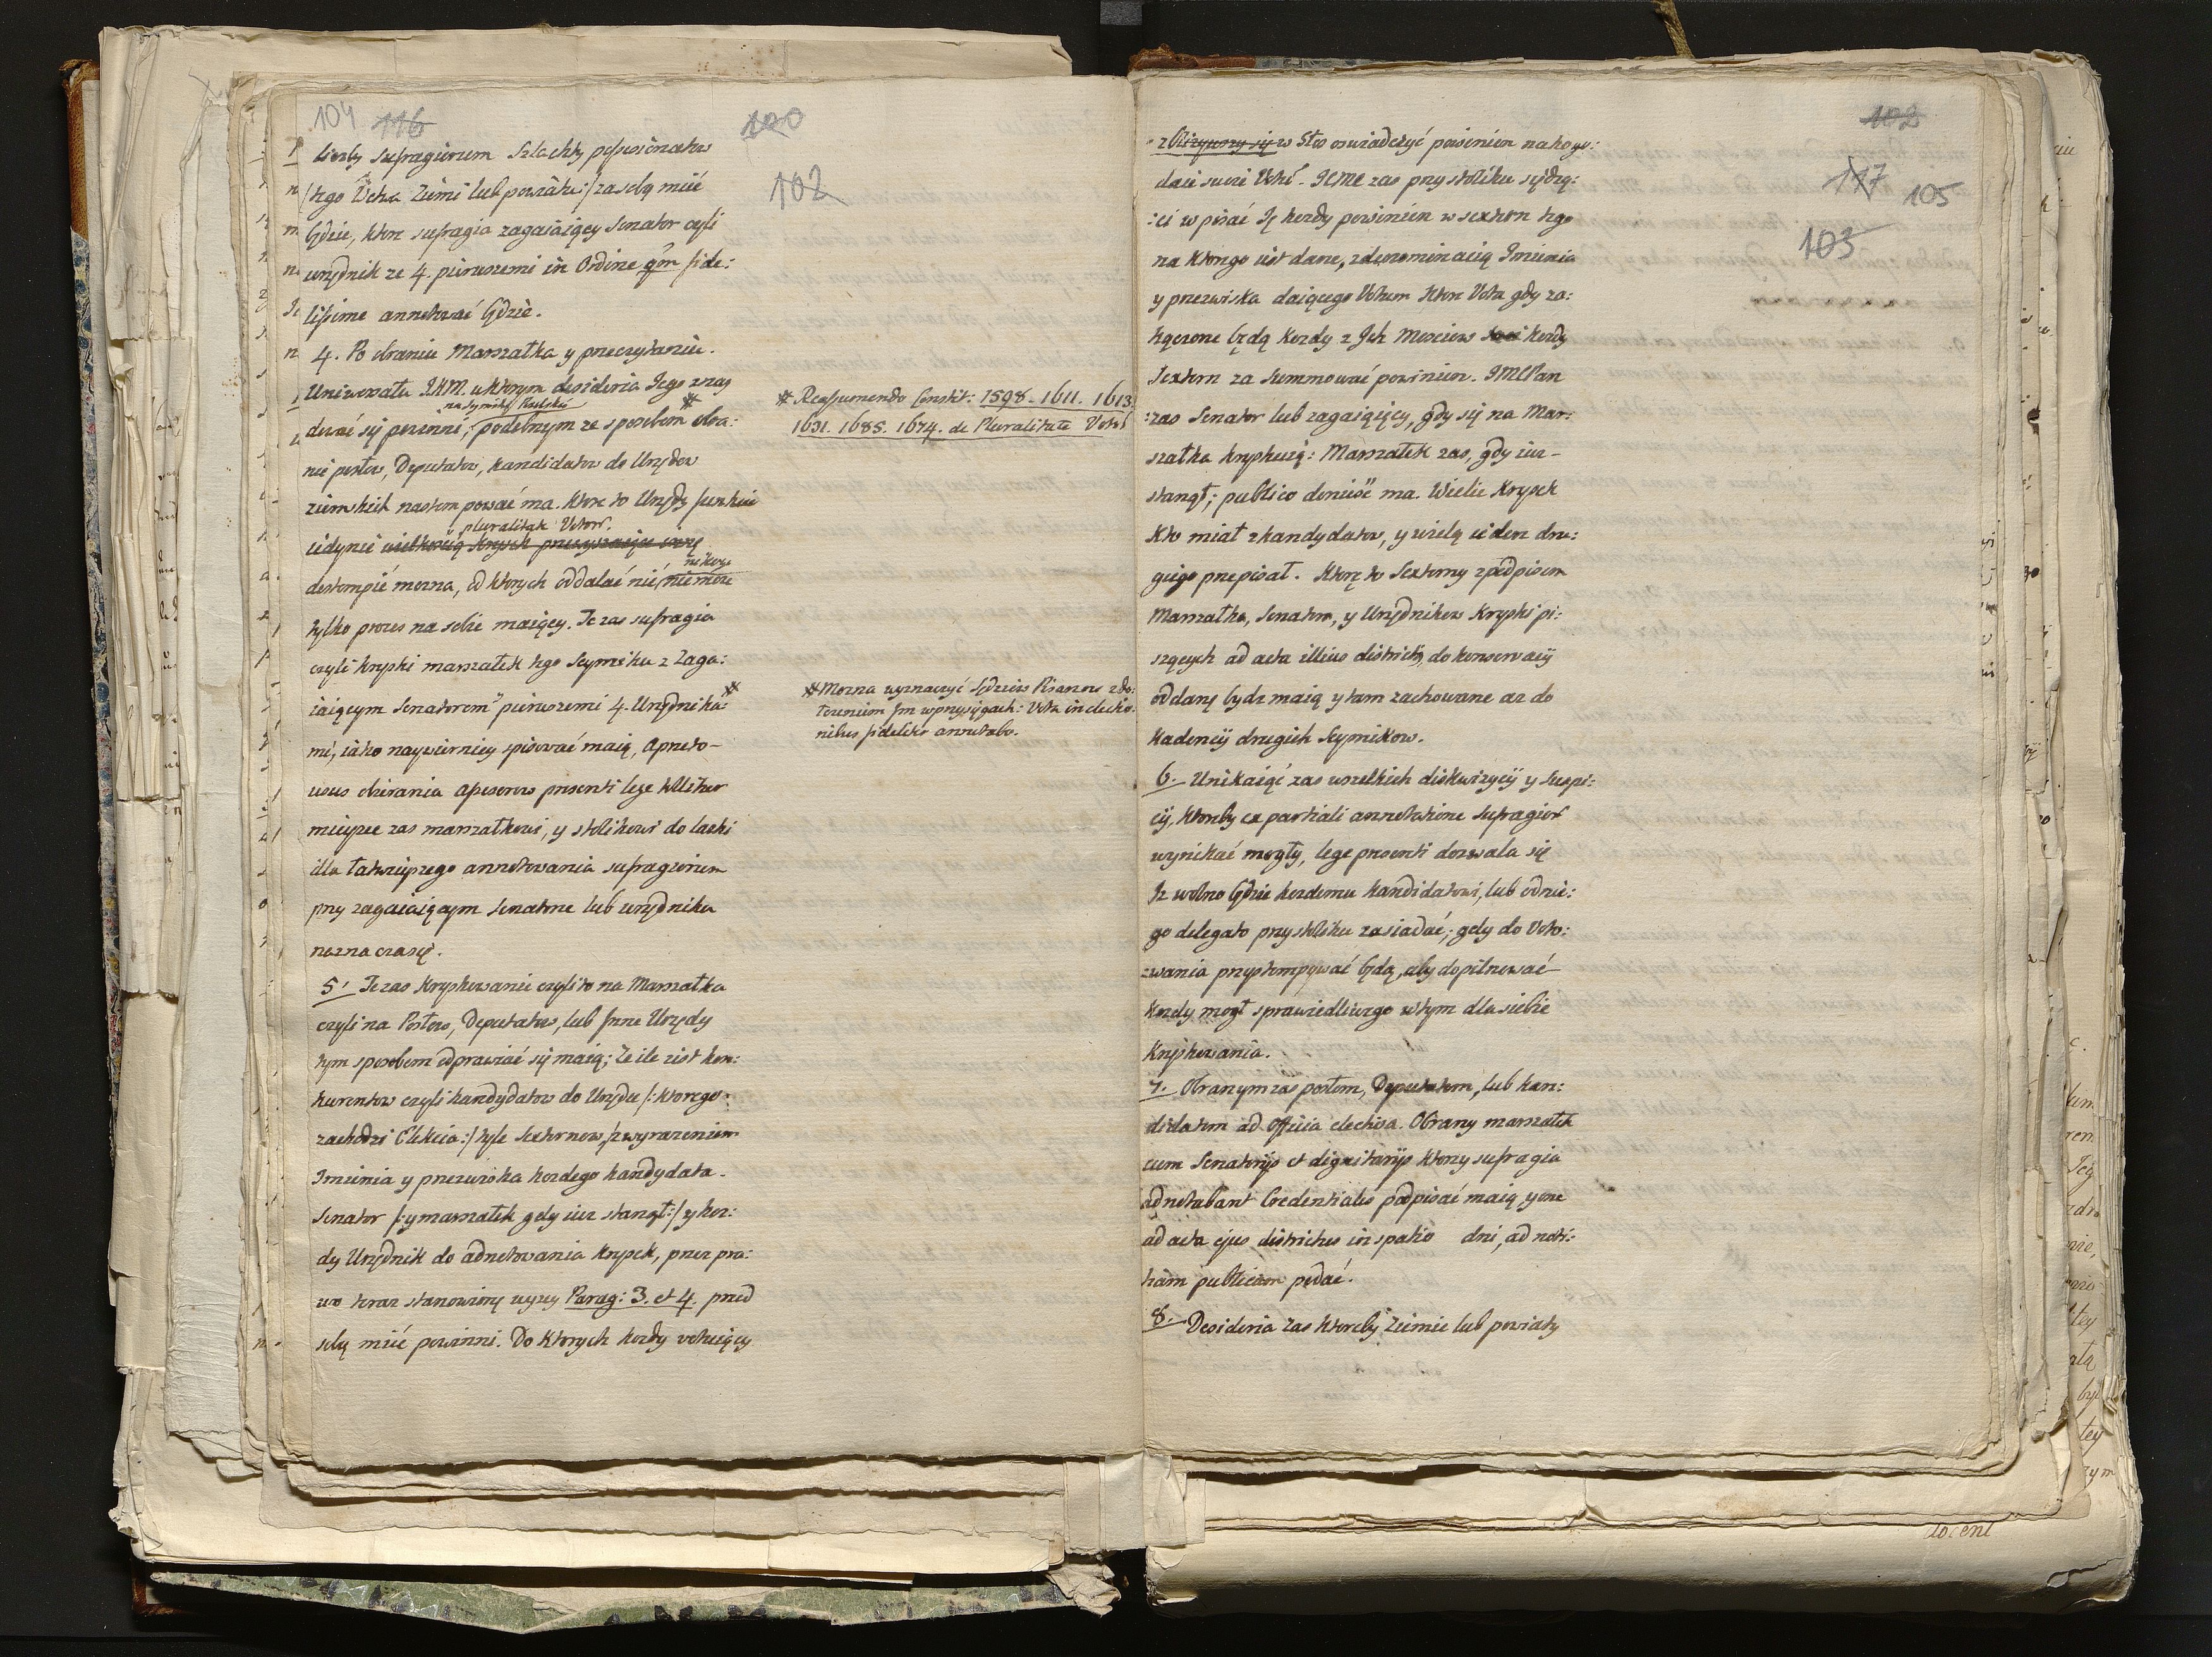 104 116
100
102
liczby sufragiorum Szlachty possessionatow
tego Wctwa Ziemi lub powiatu:/ za sobą mieć
będzie, ktore sufragia zagaiaiący Senator czyli
urzędnik ze 4. pierwszemi in Ordine qm fide:
lissime annotować będzie.
4. Po obraniu Marszałka y przeczytaniu
Uniwersału J.K.M. w ktorym desideria Jego
na Seymiki
dować się powinni; podobnym ze sposobem obra:
nie posłow, Deputatow, kandidatow do Urzędow
ziemskich nastempować ma. Ktore to Urzędy
pluralitate Votor.
iedynie wielkością krysek przewyszaiące
nikogo
dostompić mozna, od ktorych oddalać nie, nie moze
tylko proces na sobie maiący. Te zas sufragia
czyli kryski marszałek tego Seymiku z Zaga:
iaiącym Senatorem pierwszemi 4. Urzędnika:
mi, iako naywierniey spisować maią, a przeto
usus obierania Assesorow presenti lege tollitur
mieysce zas marszałkowi, y stolikowi do laski
dla łatwieyszego annotowania sufragiorum
przy zagaiaiącym Senatorze lub urzędniku
naznacza się.
5. Te zas Kryskowanie czyli to na Marszałka
czyli na Posłow, Deputatow, lub Jnne Urzędy
tym sposobem odprawiać się maią; Ze ile iest kon:
kurentow czyli kandydatow do Urzędu /: ktorego
zachodzi Elekcia:/ tyle Sexternow z wyrazeniem
Imienia y przezwiska kozdego kandydata.
Senator /: y marszałek gdy iuz stanął:/ y koz:
dy Urzędnik do adnotowania krysek, przez pra:
wo teraz stanowione wyzy Parag: 3. et 4. przed
sobą mieć powinni. Do ktorych kozdy votuiący
* Reassumendo Constit: 1598. 1611. 1613.
1631. 1685. 1674. de Pluralitate Votor
* Mozna wyznaczyć Sędziow Pisarzow z do:
lozeniem Jm w przysięgach: Vota in electio:
nibus fideliter annotabo.
102
117 105
103
zblizywszy się w Stos oswiadczyć powinien na kogo:
daie swoie Vota. JCMC zas przy stoliku siędzą:
ci wpisać Ją kozdy powinien w sextern tego
na ktorego iest dane, z denominacią Imienia
y przezwiska daiącego Votum Ktore Vota gdy za:
kączone będą Kozdy z Jch Mosciow kozdy
Sextern za summować powinien. JMCPan
zas Senator lub zagaiaiący, gdy się na Mar:
szałka kryskuią: Marszałek zas, gdy iuz
stanął; publico doniesć ma. Wiele krysek
Kto miał z kandydatow, y wielą ieden dru:
giego przepisał. Ktore to Sexterny z podpisem
Marszałka, Senatora, y Urzędnikow Kryski pi:
szących ad acta illius districtus, do konserwacij
oddane bydz maią y tam zachowane az do
kadencij drugich Seymikow.
6. Unikaiąc zas wszelkich diskwizycij y Suspi:
cij, ktoreby ex partiali annotatione Sufragior
wynikać mogły, lege presenti dozwala się
Jz wolno będzie kozdemu kandidatowi, lub od nie:
go delegato przy stoliku zasiadać; gdy do Voto:
wania przystempywać będą, aby dopilnować
Kozdy mogł sprawiedliwego w tym dla siebie
Kryskowania.
7. Obranym zas posłom, Deputatom, lub kan:
didatom ad Officia electiva. Obrany marszałek
cum Senatorijs et dignitarijs ktorzy sufragia
adnotabant Credentiales podpisać maią y one
ad acta ejus districtus in spatio dni, ad noti:
tiam publicam podać.
8. Desideria zas ktoreby Ziemie lub powiaty